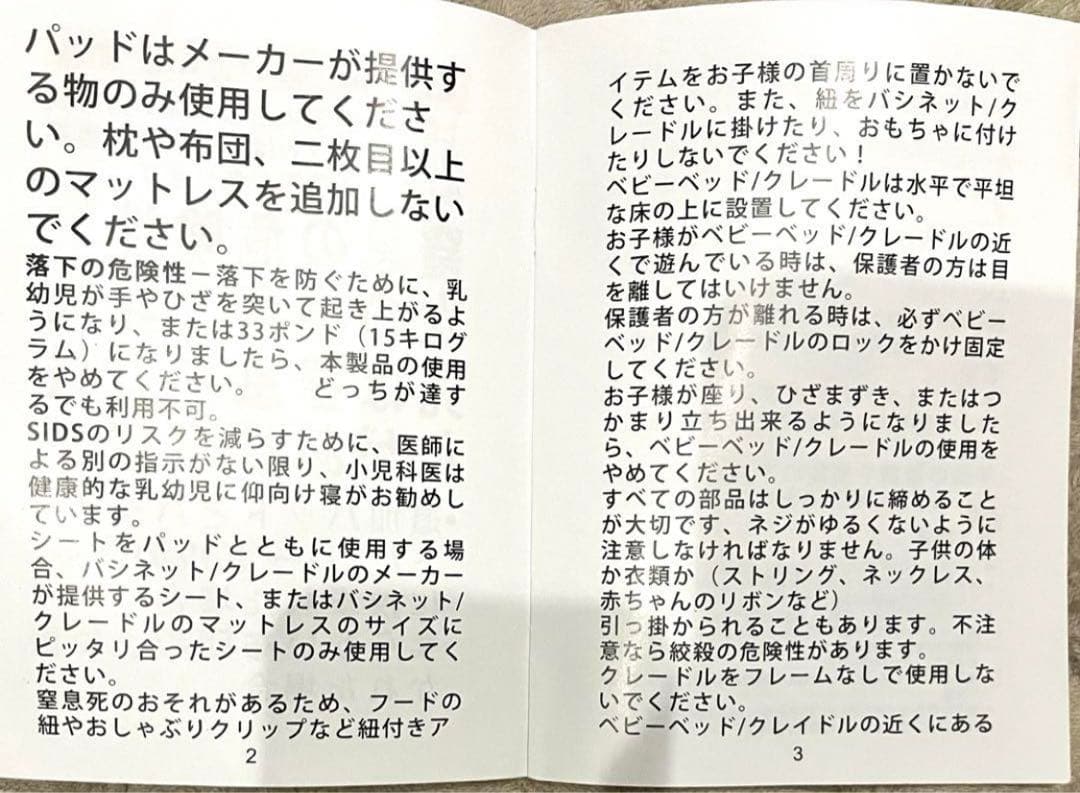 パッドはメーカーが提供す
る物のみ使用してくださ
い。枕や布団、二枚目以上
のマットレスを追加しない
でください。
落下の危険性－落下を防ぐために、乳
幼児が手やひざを突いて起き上がるよ
うになり、または33ポンド（15キログ
ラム）になりましたら、本製品の使用
をやめてください。　　どっちが達す
るでも利用不可。
SIDSのリスクを減らすために、医師に
よる別の指示がない限り、小児科医は
健康的な乳幼児に仰向け寝がお勧めし
ています。
シートをパッドとともに使用する場
合、バシネット/クレードルのメーカー
が提供するシート、またはバシネット/
クレードルのマットレスのサイズに
ピッタリ合ったシートのみ使用してく
ださい。
窒息死のおそれがあるため、フードの
紐やおしゃぶりクリップなど紐付きア
2
イテムをお子様の首周りに置かないで
ください。また、紐をバシネット/ク
レードルに掛けたり、おもちゃに付け
たりしないでください！
ベビーベッド/クレードルは水平で平坦
な床の上に設置してください。
お子様がベビーベッド/クレードルの近
くで遊んでいる時は、保護者の方は目
を離してはいけません。
保護者の方が離れる時は、必ずベビー
ベッド/クレードルのロックをかけ固定
してください。
お子様が座り、ひざまずき、またはつ
かまり立ち出来るようになりました
ら、ベビーベッド/クレードルの使用を
やめてください。
すべての部品はしっかりに締めること
が大切です、ネジがゆるくないように
注意しなければなりません。子供の体
か衣類か（ストリング、ネックレス、
赤ちゃんのリボンなど）
引っ掛かられることもあります。不注
意なら絞殺の危険性があります。
クレードルをフレームなしで使用しな
いでください。
ベビーベッド/クレイドルの近くにある
3